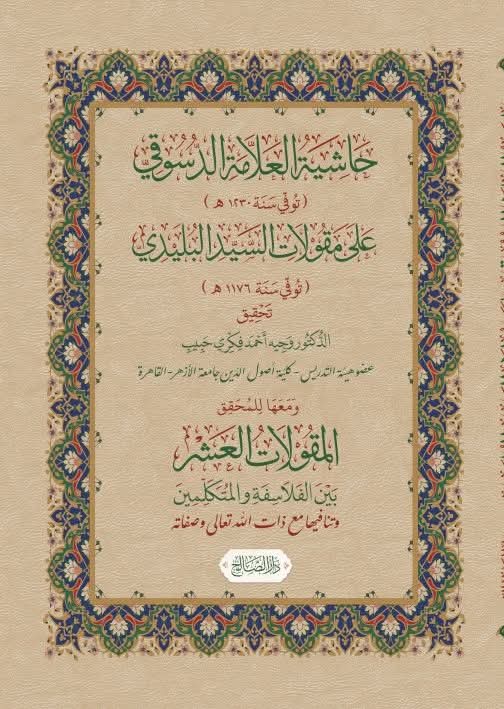 حَاشِيَة العَلَّامَة الدُّسُوقيّ
(تُوفّي سَنَة ١٢٣٠ هـ)
عَلَى مَقُولَات السَّيِّد البُلِيدي
(تُوفّي سَنَة ١١٧٦ هـ)
تَحْقِيق
الدُّكتُور وَجِيه أَحْمَد فِكْرِي حَبِيب
عضو هيئة التدريس - كلية أصول الدين جامعة الأزهر - القاهرة
وَمَعَهَا لِلمُحَقِق
المَقُولَات العَشْر
بَيْنَ الفَلَاسِفَةِ وَالمُتَكَلِّمِين
وتنافيها مع ذات الله تعالى وصفاته
دَارُ الصَّالِح